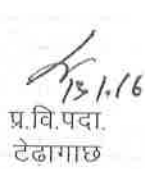 15/1/16
प्र.वि.पदा.
टेढ़ागाछ